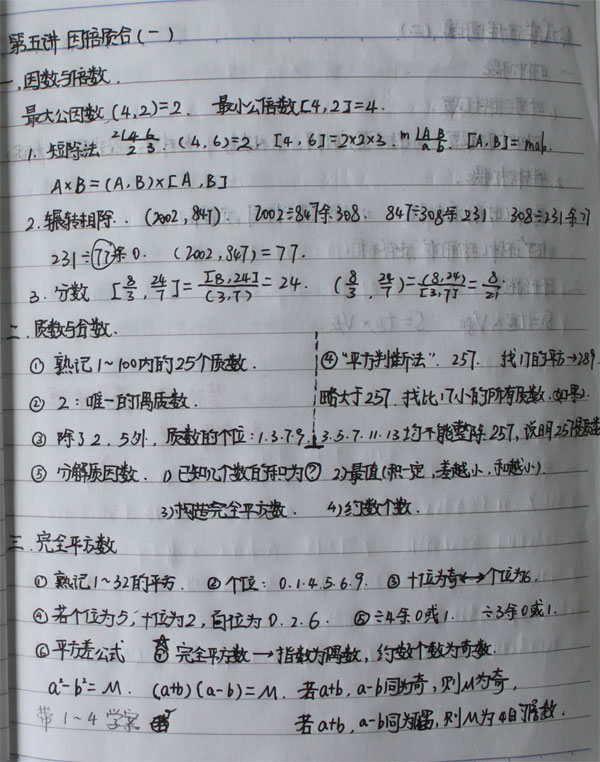 第五讲 因倍质合(一)
一.因数与倍数.
最大公因数(4,2)=2. 最小公倍数[4,2]=4.
1. 短除法 2|4 6 / 2 3. (4,6)=2. [4,6]=2×2×3. m|A B / a b. [A,B]=mab.
A×B=(A,B)×[A,B]
2.辗转相除.. (2002,847). 2002÷847余308. 847÷308余231. 308÷231余77
231÷77余0. (2002,847)=77.
3. 分数 [8/3, 24/7]=[8,24]/(3,7)=24. (8/3, 24/7)=(8,24)/[3,7]=8/21.
二.质数与合数.
① 熟记1~100内的25个质数.
② 2:唯一的偶质数.
③ 除了2、5外,质数的个位:1.3.7.9.
④“平方判断法”. 257. 找17的平方→289
略大于257.找比17小的所有质数.如果2.
3.5.7.11.13均不能整除257,说明257是质数
⑤ 分解质因数. 1)已知几个数的积为? 2)最值(积一定,差越小,和越小)
3)构造完全平方数. 4)约数个数.
三.完全平方数
① 熟记1~32的平方. ②个位:0.1.4.5.6.9. ③ 十位为奇↔个位为6.
④若个位为5,十位为2,百位为0.2.6. ⑤÷4余0或1. ÷3余0或1.
⑥平方差公式 ⑦完全平方数→指数为偶数,约数个数为奇数.
a²-b²=M. (a+b)(a-b)=M. 若a+b,a-b同为奇,则M为奇,
带1~4学案 若a+b,a-b同为偶,则M为4的倍数.